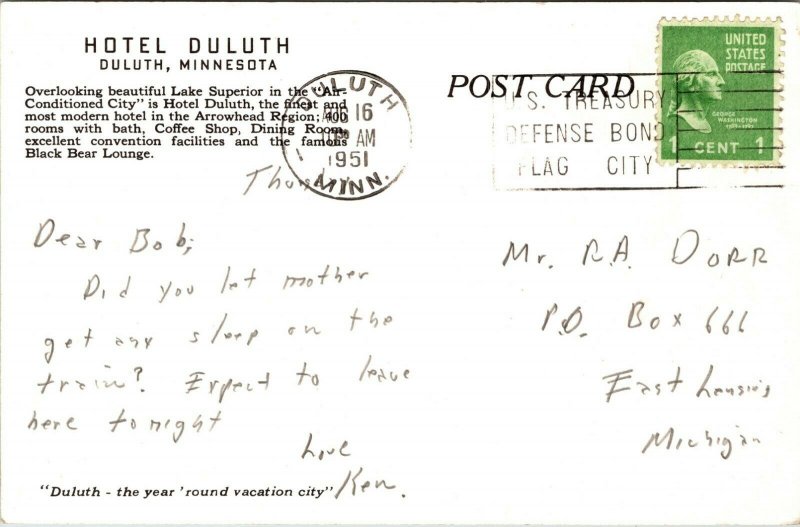 HOTEL DULUTH
DULUTH, MINNESOTA
Overlooking beautiful Lake Superior in the "Air-
Conditioned City" is Hotel Duluth, the finest and
most modern hotel in the Arrowhead Region; 400
rooms with bath, Coffee Shop, Dining Room,
excellent convention facilities and the famous
Black Bear Lounge.
DULUTH
AUG 16
AM
1951
MINN.
POST CARD
U.S. TREASURY
DEFENSE BOND
FLAG CITY
UNITED
STATES
POSTAGE
GEORGE
WASHINGTON
1 CENT 1
Thursday
Dear Bob;
Did you let mother
get any sleep on the
train? Expect to leave
here tonight
Love
Ken.
Mr. R.A. DORR
P.O. Box 666
East Lansing
Michigan
"Duluth - the year 'round vacation city"